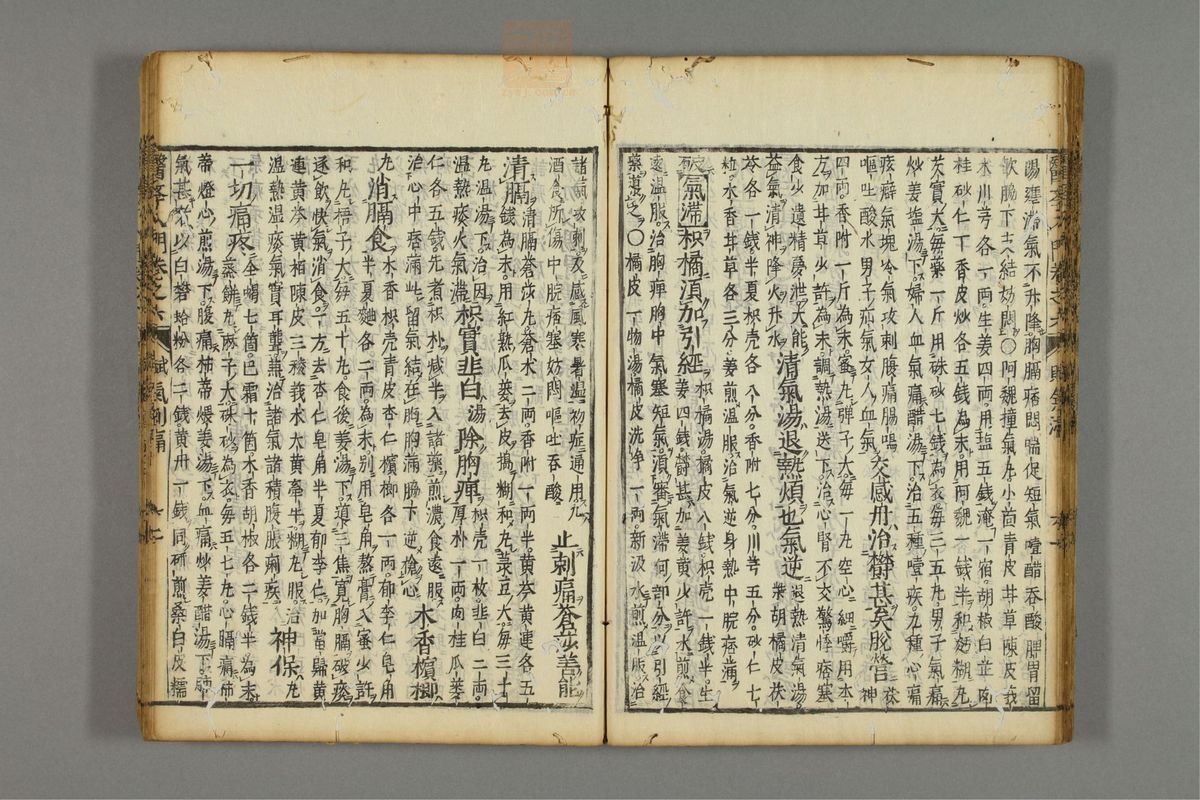 陽壅滯氣不升降胸膈痞悶喘促短氣噎醋吞酸脾胃留
飲脇下支結妨悶○阿魏撞氣丸小茴青皮甘草陳皮莪
朮川芎各一兩生姜四兩用塩五錢淹一宿胡椒白芷肉
桂砂仁丁香皮炒各五錢為末用阿魏一錢半和麪糊丸
芡實大每藥一斤用硃砂七錢為衣每三五丸男子氣痛
炒姜塩湯下婦人血氣痛醋湯下治五種噎疾九種心痛
痃癖氣塊冷氣攻刺腹痛腸鳴
嘔吐酸水男子疝氣女人血氣 交感丹治欝甚矣脫營 茯神
四兩香附一斤為末蜜丸彈子大每一丸空心細嚼用本
方加甘草少許為末調熱湯送下治心腎不交驚悸痞塞
食少遺精憂泄大能
益氣清神降火升水 清氣湯退熱煩也氣逆 退熱清氣湯柴胡橘皮茯
苓各一錢半夏枳壳各八分香附七分川芎五分砂仁七
粒木香甘草各三分姜煎温服治氣逆身熱中脘痞滿
氣滯枳橘湏加引經 枳橘湯橘皮八錢枳壳一錢半生
姜四錢欝甚加姜黃少許水煎食
遠温服治胸痺胸中氣塞短氣湏審氣滯何部分以引經
藥導之○橘皮一物湯橘皮洗淨一兩新汲水煎温服治
諸氣攻刺及感風寒暑温初症通用凡
酒食所傷中脘痞塞妨悶嘔吐吞酸 止刺痛蒼莎善能
清膈 清膈蒼莎丸蒼朮二兩香附一兩半黃芩黃連各五
錢為末用紅熟瓜蔞去皮搗糊和丸菉豆大每三十
丸温湯下治因
温熱痰火氣滯 枳實韭白湯除胸痺 枳壳一枚韭白二兩
厚朴一兩肉桂瓜蔞
仁各五錢先煮枳朴減半入諸藥煎濃食遠服
治心中痞滿此留氣結在胸胸滿脇下逆搶心 木香檳榔
丸消膈食 木香枳壳青皮杏仁檳榔各一兩郁李仁皂角
半夏麯各二兩為末別用皂角熬膏入蜜少許
和丸梧子大每五十丸食後姜湯下道三焦寬胸膈破痰
逐飲快氣消食一方去杏仁皂角半夏郁李仁加當歸黃
連黃芩黃柏陳皮三稜莪朮大黃牽牛糊丸服治
温熱温痰氣實耳聾兼治諸氣諸積腹脹痢疾 神保丸
一切痛疼 全蝎七箇巴霜十箇木香胡椒各二錢半為末
蒸餅丸麻子大硃砂為衣每五七丸心膈痛柿
蒂燈心煎湯下腹痛柿蒂煨姜湯下血痛炒姜醋湯下肺
氣甚者以白礬蛤粉各二錢黃丹一錢同研煎桑白皮糯